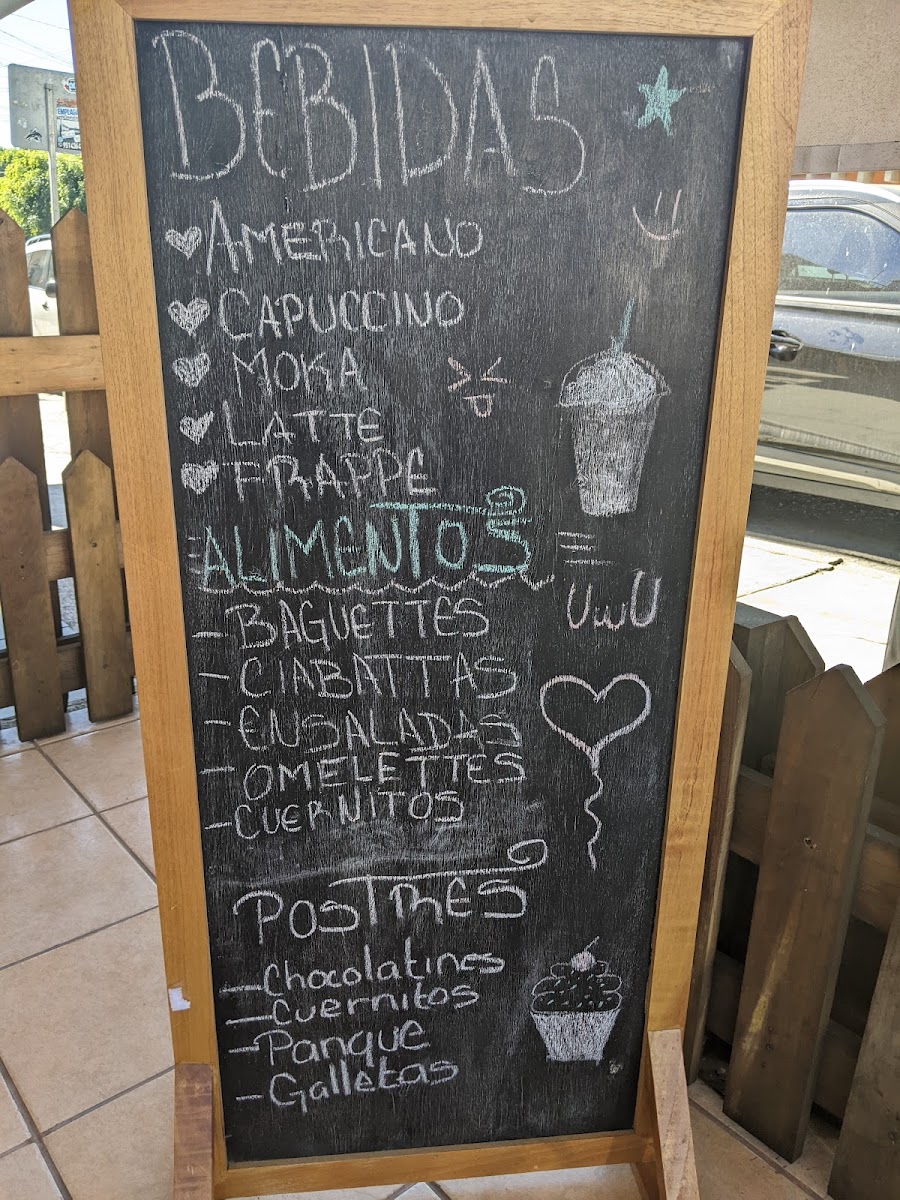 BEBIDAS
AMERICANO
CAPUCCINO
MOKA
LATTE
FRAPPE
ALIMENTOS
UwU
- BAGUETTES
- CIABATTAS
- ENSALADAS
- OMELETTES
- CUERNITOS
POSTRES
- Chocolatines
- Cuernitos
- Panque
- Galletas